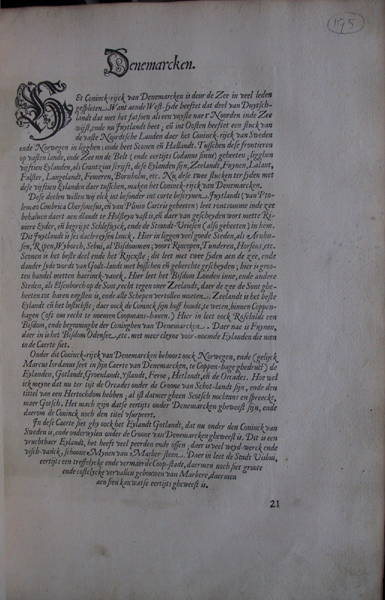 195
Denemarcken.
HEt Coninck-rijck van Denemarcken is deur de Zee in veel leden
gespleten. Want aende West-syde heeftet dat deel van Duytsch-
landt dat met sat fatsoen als een nuyste naer 't Noorden inde Zee
ende nu Juytlandt heet; en int Oosten heeftet een stuck van
de vaste Noordtsche Landen daer het Coninck-rijck van Sweden
ende Norwegen in ligghen; ende heet Sconen en Hallandt. Tusschen dese frontieren
op vasten lande, ende Zee nn de Belt (ende eertijts Codanus sinus) geheeten; ligghen
vijftien Eylanden, als Crantzius scrijft, dese Eylanden sijn, Zeelandt, Fuynen, Lalant,
Falster, Langelandt, Femeren, Bornholm, etc. Nu dese twee stucken ter syden met
dese vijftien Eylanden daer tusschen, maken het Coninck-rijck van Denemarcken.
Dese deelen willen wy elck int besonder int corte bescrijven. Juytlandt (van Pto-
lemeo Cimbrica Chersonesus, en van Plinio Cartris geheeten) leet rontsomme inde zee
behalven daert aen dlandt te Holsteyn vast is,
Eyder, en
Juytlandt is
sen, Ripen, Wyborch,
Sconen is het beste deel ende het Rijcxste; dit leet met twee syden aen de zee, ende
dander syde wordt van Godt-landt met bosschen en geberchte gescheyden; hier is groo-
ten handel metten harinck-vanck. Hier leet het Bisdom Londen inne, ende andere
Steden, als Elsenborch op de Sont, recht tegen over Zeelandt, daer de zee de Sont ghe-
heeten
Eylandt en het lustichste; daer oock de Coninck sijn hof houdt, te weten, binnen Coppen-
hagen (oft om recht te noemen Coopmans-haven.) Hier in leet oock Roschilde een
Bisdom, ende begravinghe der Coninghen van Denemarcken. Daer nae is Fuynen,
daer in is het Bisdom Odensee, etc. met meer cleyne voor-noemde Eylanden die men
in de Caerte siet.
Onder dit Coninck-rijck van Denemarcken behoort oock Norwegen, ende (gelijck
Marcus Iordanus seet in sijn Caerte van Denemarcken, te Coppen-hage ghedruct) de
Eylanden, Gotlandt, Groenlandt, Yslandt, Feroe, Hetlandt, en de Orcades. Hoe wel
ick meyne dat nu ter tijt de Orcades onder de Croone van Schot-landt sijn, ende den
titel van een Hertochdom hebben; al ist datmer gheen Scotsch nochtans en spreeckt,
maer Gotsch. Het mach sijn datse eertijts onder Denemarcken ghweest sijn, ende
daerom de Coninck noch den titel usurpeert.
In dese Caerte siet ghy oock het Eylandt Gotlandt, dat nu onder den Coninck van
Sweden is, ende onderwylen onder de Croone van Denemarcken ghweest is. Dit is een
vruchtbaer Eylandt, het heeft veel peerden ende ossen; daer is veel weyd-werck ende
visch-vanck, schoone Mynen van Marber-steen. Daer in leet de Stadt Visbui,
eertijts een treffelycke ende vermaerde Coop-stadt, daermen noch siet groote
ende costelycke vervallen gebouwen van Marbere, daer men
aen sien kan wat se eertijts ghweest is.
21